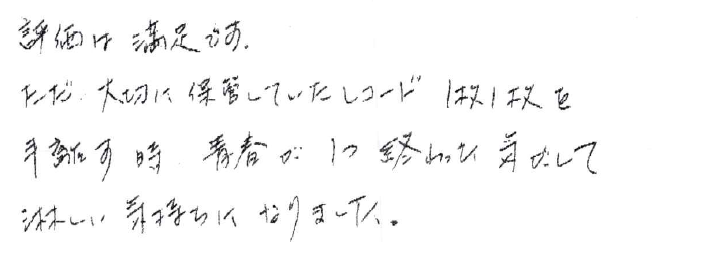 評価は満足です。
ただ、大切に保管していたレコード1枚1枚を
手離す時、青春が1つ終わった気がして
淋しい気持ちになりました。